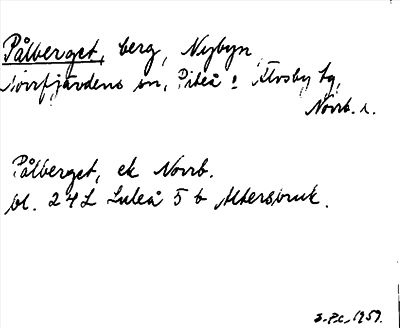 Pålberget, berg, Nybyn
Norrfjärdens sn, Piteå o Älvsby tg,
Norrb. l.
Pålberget, ek Norrb.
bl. 24L Luleå 5 b Altersbruk.
1959.